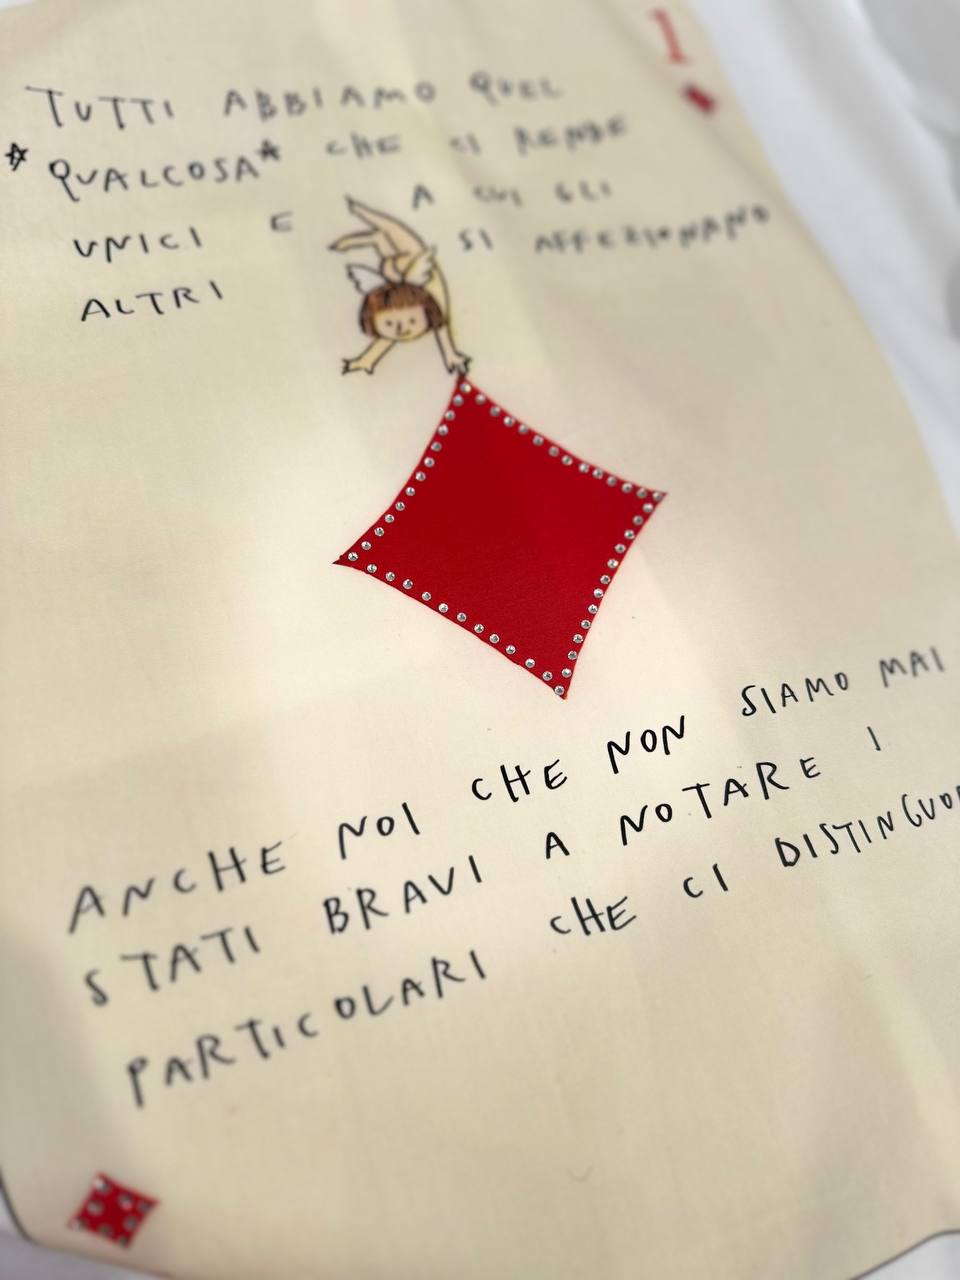 1
TUTTI ABBIAMO QUEL
*QUALCOSA* CHE CI RENDE
UNICI E A CUI GLI
ALTRI SI AFFEZIONANO
ANCHE NOI CHE NON SIAMO MAI
STATI BRAVI A NOTARE I
PARTICOLARI CHE CI